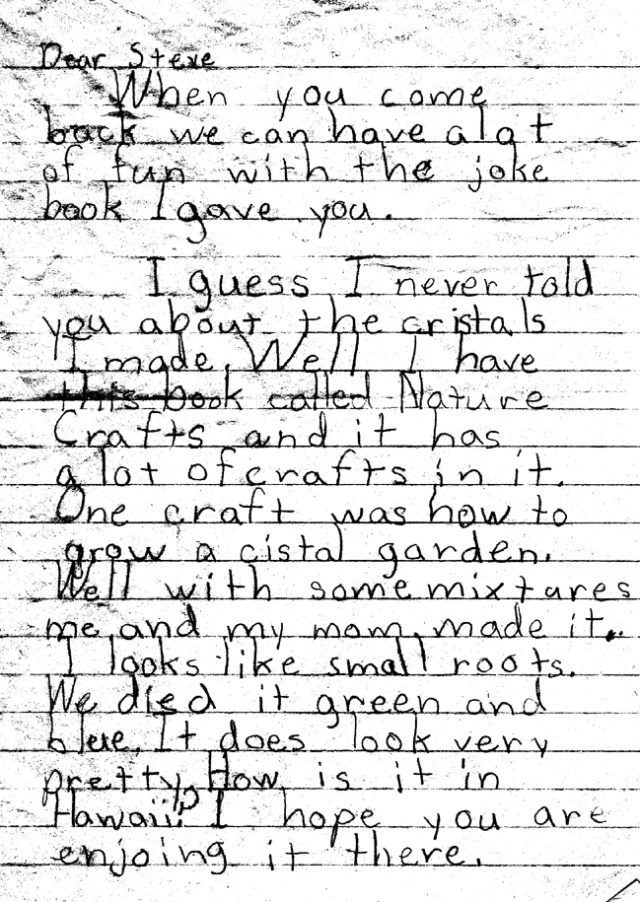 Dear Steve
When you come
back we can have a lot
of fun with the joke
book I gave you.
I guess I never told
you about the cristals
I made. Well I have
this book called Nature
Crafts and it has
a lot of crafts in it.
One craft was how to
grow a cistal garden.
Well with some mixtures
me, and my mom, made it.
I looks like small roots.
We died it green and
blue. It does look very
pretty. How is it in
Hawaii? I hope you are
enjoing it there.